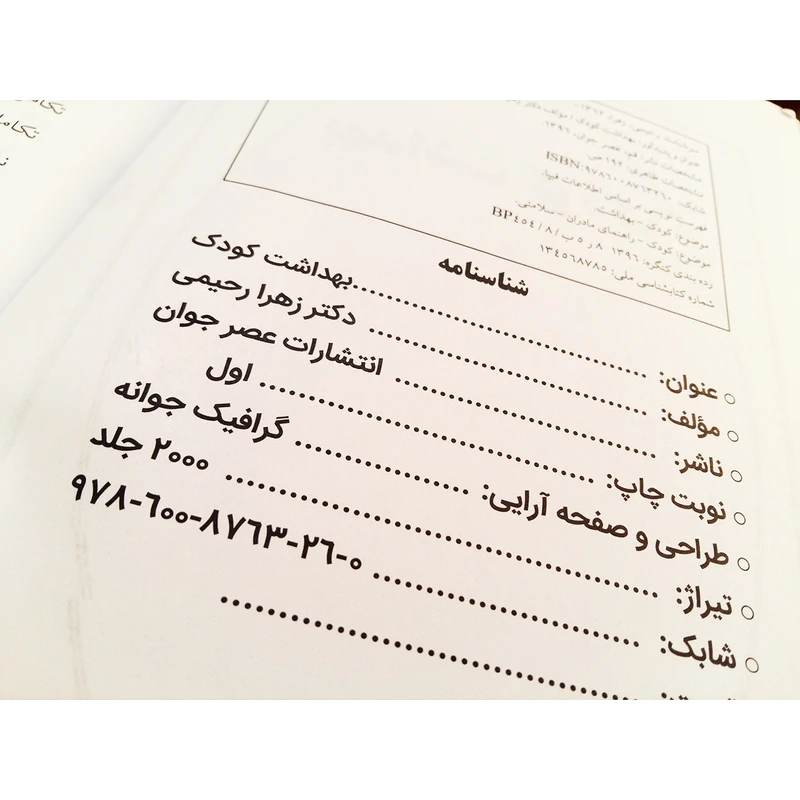 سرشناسه: رحیمی، زهرا، ۱۳۶۲-
عنوان و پدیدآور: بهداشت کودک / مؤلف دکتر
مشخصات نشر: قم، عصر جوان، ۱۳۹٦
مشخصات ظاهری: ۱۹۲ ص
شابک: ISBN:۹۷۸٦۰۰۸۷٦۳۲٦۰
فهرست نویسی بر اساس اطلاعات فیپا.
موضوع: کودک - بهداشت
موضوع: کودک - راهنمای مادران - سلامتی.
رده بندی کنگره: ۱۳۹٦ ۸ر٥ب/۸/BP٤٥٤
شماره کتابشناسی ملی: ۱۳٤٥٦۸۷۸٥
شناسنامه
○ عنوان: ........................................ بهداشت کودک
○ مؤلف: ........................................ دکتر زهرا رحیمی
○ ناشر: ........................................ انتشارات عصر جوان
○ نوبت چاپ: ........................................ اول
○ طراحی و صفحه آرایی: ........................ گرافیک جوانه
○ تیراژ: ........................................ ۲۰۰۰ جلد
○ شابک: ........................................ ۹۷۸-٦۰۰-۸۷٦۳-۲٦-۰